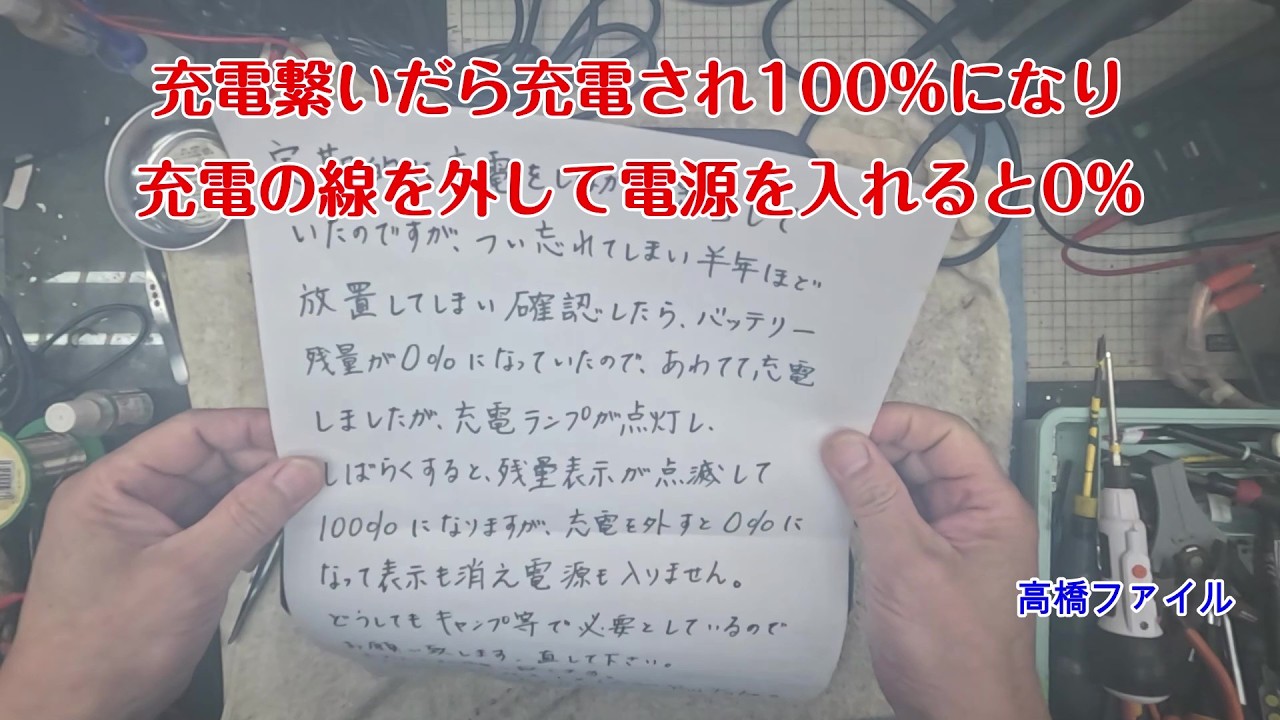 充電繋いだら充電され100%になり
充電の線を外して電源を入れると0%
いたのですが、つい忘れてしまい半年ほど
放置してしまい確認したら、バッテリー
残量が0%になっていたので、あわてて充電
しましたが、充電ランプが点灯し、
しばらくすると、残量表示が点滅して
100%になりますが、充電を外すと0%に
なって表示も消え電源も入りません。
どうしてもキャンプ等で必要としているので
お願い致します。直して下さい。
高橋ファイル